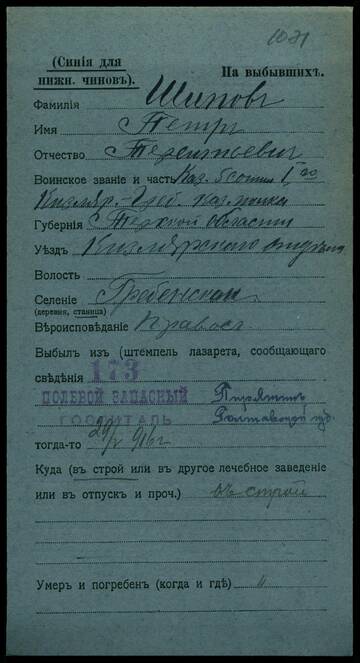 1021
(Синія для
нижн. чиновъ).
На выбывшихъ.
Фамилія Шиповъ
Имя Петръ
Отчество Терентьевич
Воинское званіе и часть Каз. 5 сотни 1го
Кизляр. Греб. каз. полка
Губернія Терской области
Уѣздъ Кизлярского отдела
Волость
Селеніе Гребенская
(деревня, станица)
Вѣроисповѣданіе Правосл
Выбылъ изъ (штемпель лазарета, сообщающаго
свѣдѣнія) 173
ПОЛЕВОЙ ЗАПАСНЫЙ Пирятинъ
ГОСПИТАЛЬ Полтавской губ.
тогда-то 916 г
Куда (въ строй или въ другое лечебное заведеніе
или въ отпускъ и проч.) въ строй
Умеръ и погребенъ (когда и гдѣ) "